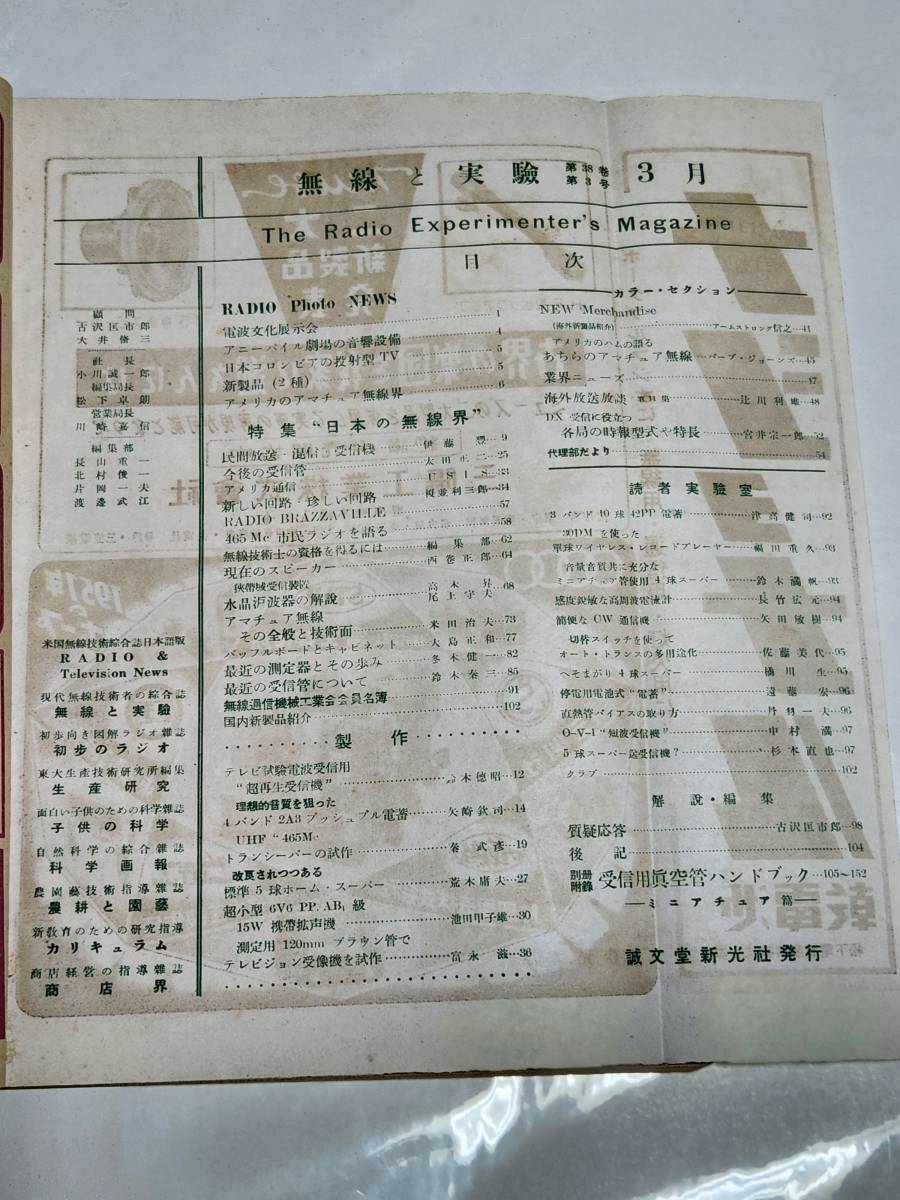 無線と実驗 第38巻 第3号 3月
The Radio Experimenter's Magazine
目次
顧問
古沢匡市郎
大井脩三
社長
小川誠一郎
編集局長
松下卓朗
営業局長
川崎嘉信
編集部
長山重一
北村俊一
片岡一夫
渡邊武江
米国無線技術綜合誌日本語版
RADIO &
Television News
現代無線技術者の綜合誌
無線と実驗
初歩向き図解ラジオ雜誌
初歩のラジオ
東大生産技術研究所編集
生産研究
面白い子供のための科学雜誌
子供の科学
自然科学の綜合雜誌
科学画報
農園藝技術指導雜誌
農耕と園藝
新敎育のための研究指導
カリキュラム
商店経営の指導雜誌
商店界
RADIO Photo NEWS
電波文化展示会 1
アニーパイル劇場の音響設備 4
日本コロンビアの投射型TV 5
新製品(2種) 5
アメリカのアマチュア無線界 6
特集“日本の無線界”
民間放送・混信・受信機 伊藤豊 9
今後の受信管 太田正二 25
アメリカ通信 33
新しい回路・珍しい回路 34
RADIO BRAZZAVILLE 57
465Mc市民ラジオを語る 58
無線技術士の資格を得るには 編集部 62
現在のスピーカー 西巻正郎 64
狹帯域受信裝置
水晶沪波器の解説 高木昇 尾上守夫 68
アマチュア無線
その全般と技術面 米田治夫 73
バッフルボードとキャビネット 大島正和 77
最近の測定器とその歩み 冬木健一 82
最近の受信管について 鈴木泰三 85
無線通信機械工業会会員名簿 91
国内新製品紹介 102
製作
テレビ試驗電波受信用
“超再生受信機” 鈴木徳昭 12
理想的音質を狙った
4バンド2A3プッシュプル電蓄 矢崎欽司 14
UHF “465Mc
トランシーバーの試作 秦武彦 19
改良されつつある
標準5球ホーム・スーパー 荒木庸夫 27
超小型6V6 PP. AB₁級
15W携帯拡声機 池田甲子雄 30
測定用120mmブラウン管で
テレビジョン受像機を試作 富永滋 36
カラー・セクション
NEW Merchandise
(海外新製品紹介) アームストロング信之 41
アメリカのハムの語る
あちらのアマチュア無線 バーブ・ジョーンズ 45
業界ニュース 47
海外放送放談 第11集 辻川利雄 48
DX受信に役立つ
各局の時報型式や特長 宮井宗一郎 52
代理部だより 54
読者実驗室
3バンド10球42PP電蓄 津高健司 92
30DMを使った
單球ワイヤレス・レコードプレーヤー 福田重久 93
音量音質共に充分な
ミニアチュア管使用4球スーパー 鈴木満帆 93
感度鋭敏な高周波電流計 長竹広元 94
簡便なCW通信機 矢田敏樹 94
切替スイッチを使って
オート・トランスの多用途化 佐藤美代 95
へそまがり4球スーパー 橋川生 95
停電用電池式“電蓄” 遠藤宏 96
直熱管バイアスの取り方 丹羽一夫 96
O-V-1“短波受信機” 中村満 97
5球スーパー送受信機? 杉本直也 97
クラブ 102
解説・編集
質疑応答 古沢匡市郎 98
後記 104
別册附錄 受信用眞空管ハンドブック 105~152
ーミニアチュア篇ー
誠文堂新光社発行